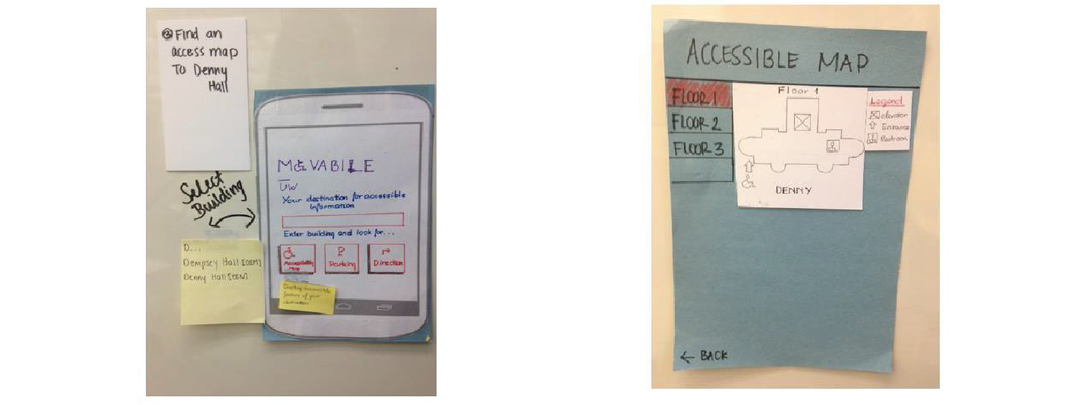 ② Find an
access map
To Denny
Hall
Select
Building
D...
Dempsey Hall [DEM]
Denny Hall [DEN]
MOVABILE
UW
Your destination for accessible
information
Enter building and look for...
Accessibility
Map
Parking
Direction
feature of your
ACCESSIBLE MAP
FLOOR 1
FLOOR 2
FLOOR 3
Floor 1
DENNY
Legend
elevator
Entrance
Restroom
← BACK